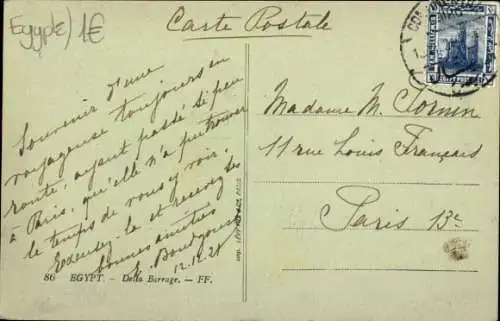 Egypte) 1€
Carte Postale
Souvenir d'une
voyageuse toujours en
route, ayant passé si peu
à Paris, qu'elle n'a pu trouver
le temps de vous y voir.
Excusez-le et recevez les
bonnes amitiés
12.12.21
Madame M. Cornin
11 rue Louis Français
Paris 13e
86 EGYPT. - Delta Barrage. - FF.